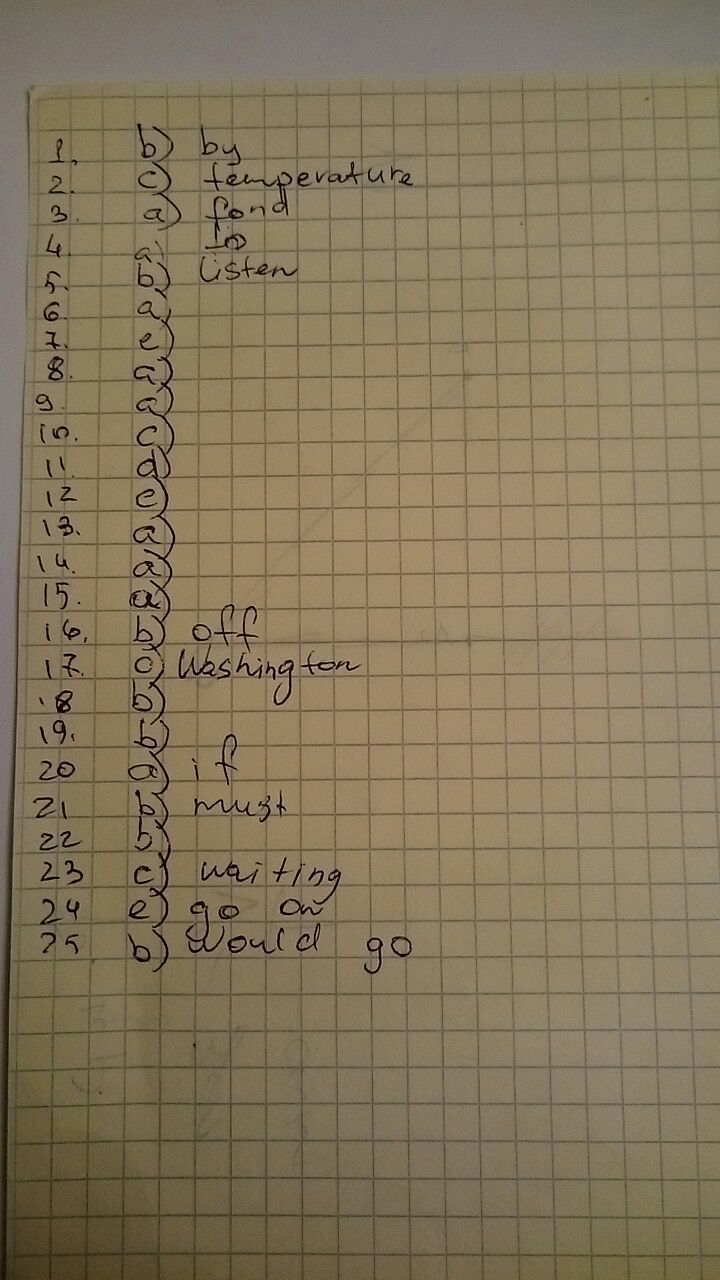 1. b) by
2. c) temperature
3. a) fond
4. a) to
5. b) listen
6. a)
7. e)
8. a)
9. a)
10. c)
11. d)
12 e)
13. a)
14. a)
15. a)
16. b) off
17. c) Washington
18 b)
19. b)
20 a) if
21 b) must
22 b)
23 c) waiting
24 e) go on
25 b) would go